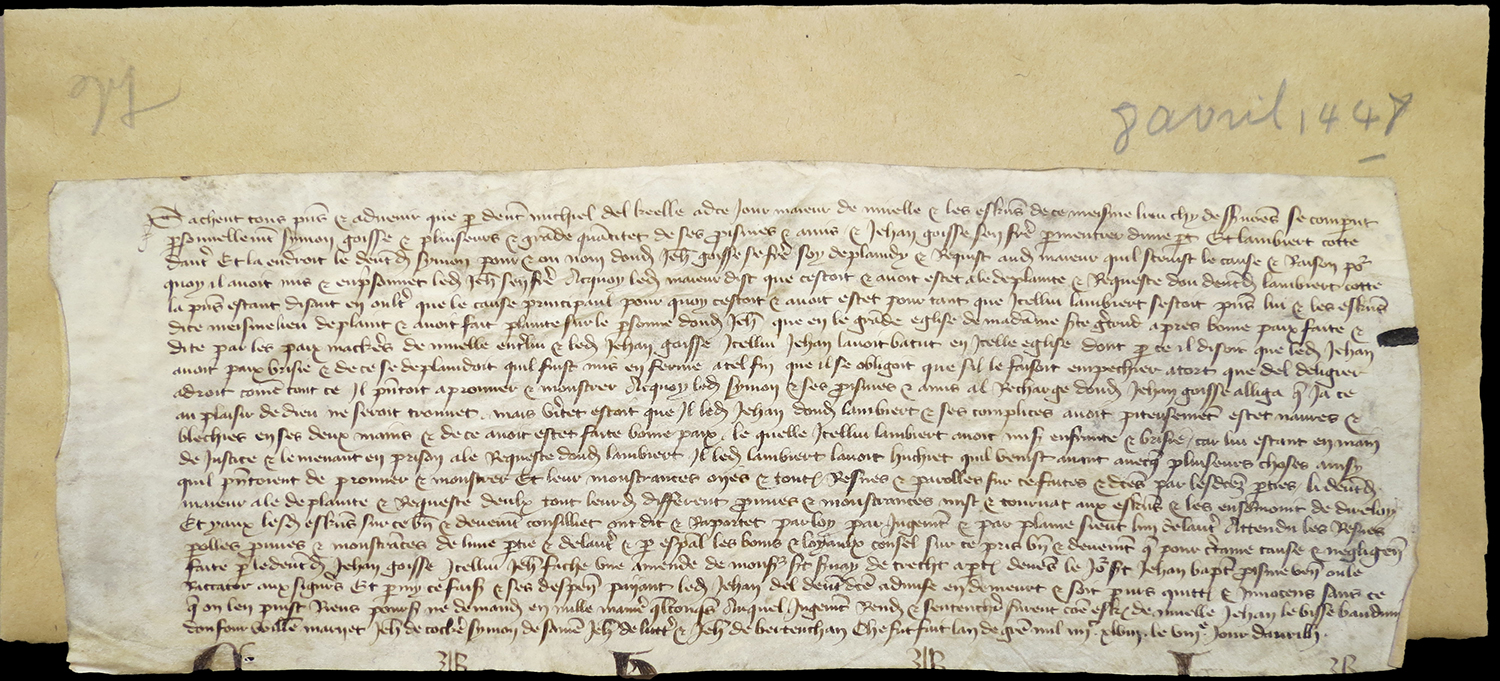 8 avril 1447
Sachent tous p̄ns & advenir que p̄ devāt michiel del keelle adce jour maieur de nivelle & les eskeūs de ce meisme lieu chy desso9 només se compūt
p̄sonnellemēt Symon goisse & pluiseurs & grāde quātitet de ses p̄oismes & amis & Jehan goisse sen frē parmentier dune p̄t Et lambiert cotte
dautē Et la endroit le devātd̄ Symon pour & ou nom doud̄ Jeh̄ goisse se frē soy deplaindy & Requist aud̄ maieur quil sceuist le cause & Raison po͛
quoy il avoit mis & enp̄sonnet led̄ Jeh̄ sen frē Acquoy led̄ maieur dist que cestoit & avoit estet ale deplainte & Requeste dou devātd̄ lambiert cotte
la p̄ns estant disant en oultē que le cause principaul pour quoy cestoit & avoit estet pour tant que Icellui lambiert sestoit p̄ns lui & les eskeūs
dice meisme lieu deplaint & avoit fait plainte sur le p̄sonne doud̄ Jeh̄ que en le grāde eglise de madāme s̄te ḡtrud apres bonne paix faite &
dite par les paix mackēs de nivelle entē lui & led̄ Jehan goisse Icellui Jehan lavoit batut en Icelle eglise dont p̄ ce il disoit que led̄ Jehan
avoit paix brisie & de ce se deplaindoit quil fuist mis en ferme a tel fin que il se obligoit que sil le faisoit empechier atort que del deligier
adroit comē tout ce Il p̄ntoit aprouver & monstrer Acquoy led̄ Symon & ses p̄oismes & amis al Recharge doud̄ Jehan goisse alliga q̄ Ja ce
au plaisir de dieu ne seroit trouvet mais vītet estoit que Il led̄ Jehan doud̄ lambiert & ses complices avoit piteusemēt estet navres &
blechies en ses deux mains & de ce avoit estet faite bonne paix le quelle Icellui lambiert avoit enfrainte & brisie car lui estant en main
de Justice & le menant en prison ale Requeste doud̄ lambiert Il led̄ lambiert lavoit huchiet quil venist avant avecq̄ pluiseurs choses ainsy
quil p̄ntoient de prouver & monstrer Et leur monstrances oyes & tout Resnes & parolles sur ce faites & dtēs par lesdtēz p̄ties li devātd̄
maieur ale deplainte & Requeste deulx tout leurd̄ different prouves & monstrances mist & tournat aux eskeūs & les ensemonit de dire loy
Et yaux lesd̄ eskeūs sur ce bn̄ & deuemt̄ consilliet ont dit & Raportet par loy par Jugemt̄ & par plaine sieut lun delautē Attendu les Resnes
p̄olles prouves & monstrāces de lune p̄tie & delautē & p̄ esp̄al les boins & loyaulx consel sur ce pris bn̄ & deuemt̄ q̄ pour c̄taine cause & negligen̄
faite p̄ le devātd̄ Jehan goisse Icellui Jeh̄ fache une amende de mons͛ s̄t s̄vay de trecht apt̄ devēs le Jo͛ s̄t Jehan bapt̄ p̄oisme ven̄ ou le
Raccater aux signr̄s Et p̄my ce fais & ses despen̄ paijant led̄ Jehan del devāt dtē advise en demeurt & soit p̄uis quitte & Innocens sans ce
q̄ on len puist Riens poursiē ne demand̄ en nulle manē q̄lconq̄s Auquel Jugemt̄ Rend̄ & Sentenchīe furent com̄ eskeūs de nivelle Jehan le visse bauduin
confour willē marijet Jeh̄ de cockīe Symon de samē Jeh̄ de luttē & Jeh̄ de bertenchan Che fut fait lan de grē mil iiij^c xlvij le viij^e Jour davrilh